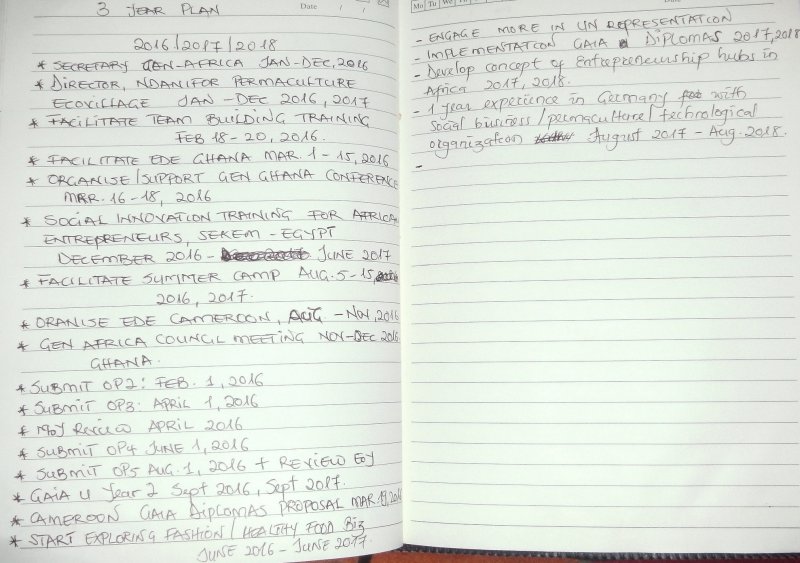 3 YEAR PLAN
Date / /
2016/2017/2018
* SECRETARY GEN-AFRICA JAN-DEC, 2016
* DIRECTOR, NDANIFOR PERMACULTURE
ECOVILLAGE JAN - DEC 2016, 2017
* FACILITATE TEAM BUILDING TRAINING
FEB 18-20, 2016.
* FACILITATE EDE GHANA MAR. 1-15, 2016
* ORGANISE/SUPPORT GEN GHANA CONFERENCE
MAR. 16-18, 2016
* SOCIAL INNOVATION TRAINING FOR AFRICA
ENTREPRENEURS, SEKEM - EGYPT
DECEMBER 2016 - JUNE 2017
* FACILITATE SUMMER CAMP AUG. 5-15,
2016, 2017.
* ORANISE EDE CAMEROON, AUG - NOV, 2016
* GEN AFRICA COUNCIL MEETING NOV-DEC 2016
GHANA.
* SUBMIT OP2: FEB. 1, 2016
* SUBMIT OP3: APRIL 1, 2016
* MoY Review APRIL 2016
* SUBMIT OP4 JUNE 1, 2016
* SUBMIT OP5 AUG. 1, 2016 + REVIEW EoY
* GAIA U Year 2 Sept 2016, Sept 2017.
* CAMEROON GAIA DIPLOMAS PROPOSAL MAR 2016
* START EXPLORING FASHION/HEALTHY FOOD Biz
JUNE 2016 - JUNE 2017.
Mo Tu We
- ENGAGE MORE IN UN REPRESENTATION
- IMPLEMENTATION GAIA DIPLOMAS 2017, 2018
- Develop concept of Entrepreneurship hubs in
Africa 2017, 2018.
- 1 year experience in Germany with
Social business/permaculture/technological
organization August 2017 - Aug. 2018.
-